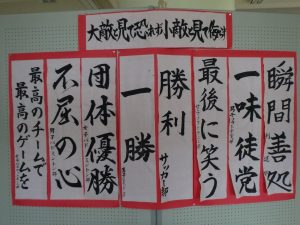 大敵と見て恐れず小敵と見て侮らず
瞬間善処
剣道
一味徒党
最後に笑う
勝利
サッカー部
一勝
団体優勝
不屈の心
最高のチームで
最高のゲームを